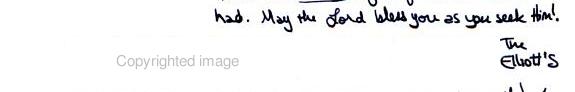 had. May the Lord bless you as you seek Him!
The
Copyrighted image
Elliott's